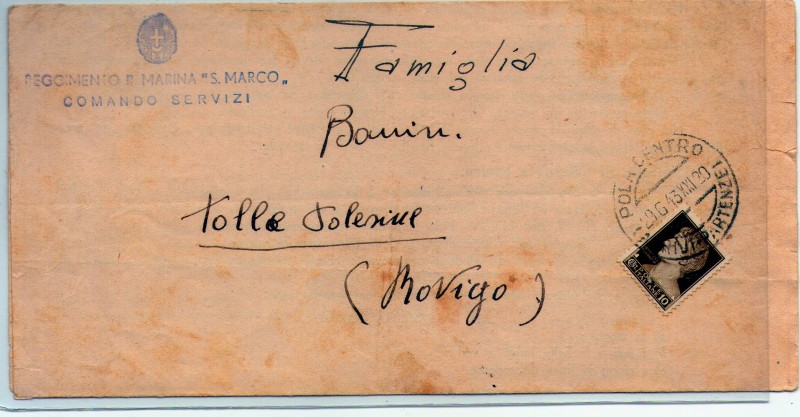 REGGIMENTO R. MARINA "S. MARCO"
COMANDO SERVIZI
Famiglia
Bonin.
Tolle Polesine
(Rovigo)
POLA CENTRO
PARTENZE)
.6.43 XXI 20
10